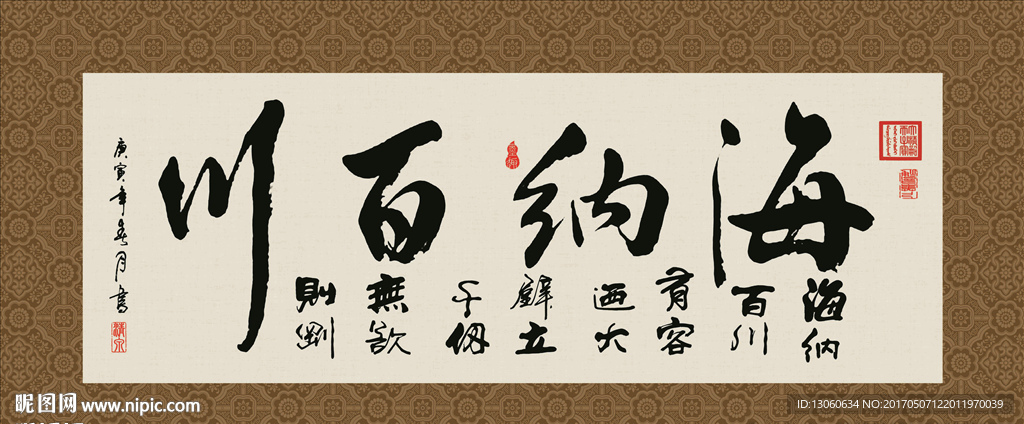 海納百川
海納
百川
有容
迺大
壁立
千仞
無欲
則剛
庚寅年春月書
昵图网 www.nipic.com
ID:13060634 NO:20170507122011970039